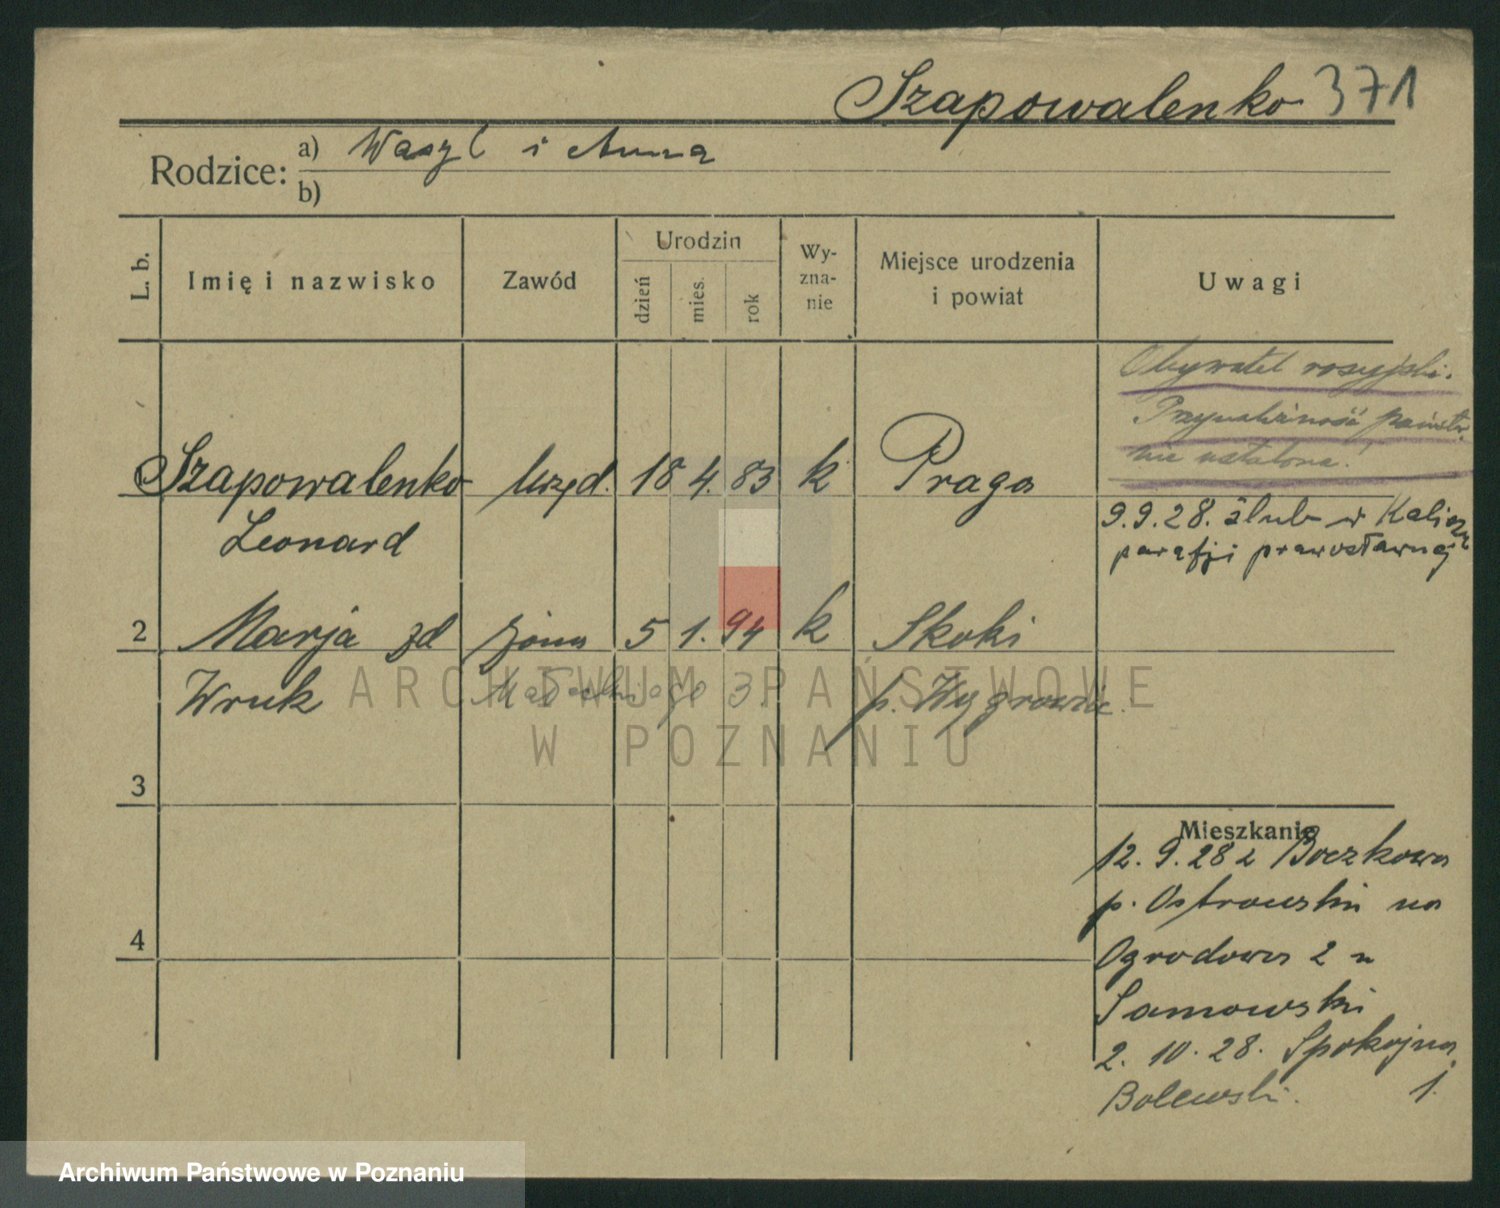 Szapowalenko 371
Rodzice: a) Wasyl i Anna
b)
L. b. Imię i nazwisko Zawód Urodzin dzień mies. rok Wy-zna-nie Miejsce urodzenia i powiat Uwagi
Obywatel rosyjski.
Przynależność państw.
nie ustalona!
Szapowalenko Urzęd. 18 4. 83 k Praga
Leonard
9.9.28. ślub w Kaliszu
parafji prawosławnej
2 Marja zd żona 5 1. 94 k Skoki
Wruk 3 p. Wągrowiec
ARCHIWUM PAŃSTWOWE
W POZNANIU
3
Mieszkanie
12. 9. 28 z Boczkowa
p. Ostrowski na
4
Ogrodowa 2 u
Sarnowski
2. 10. 28. Spokojna
Bolewski. 1.
Archiwum Państwowe w Poznaniu